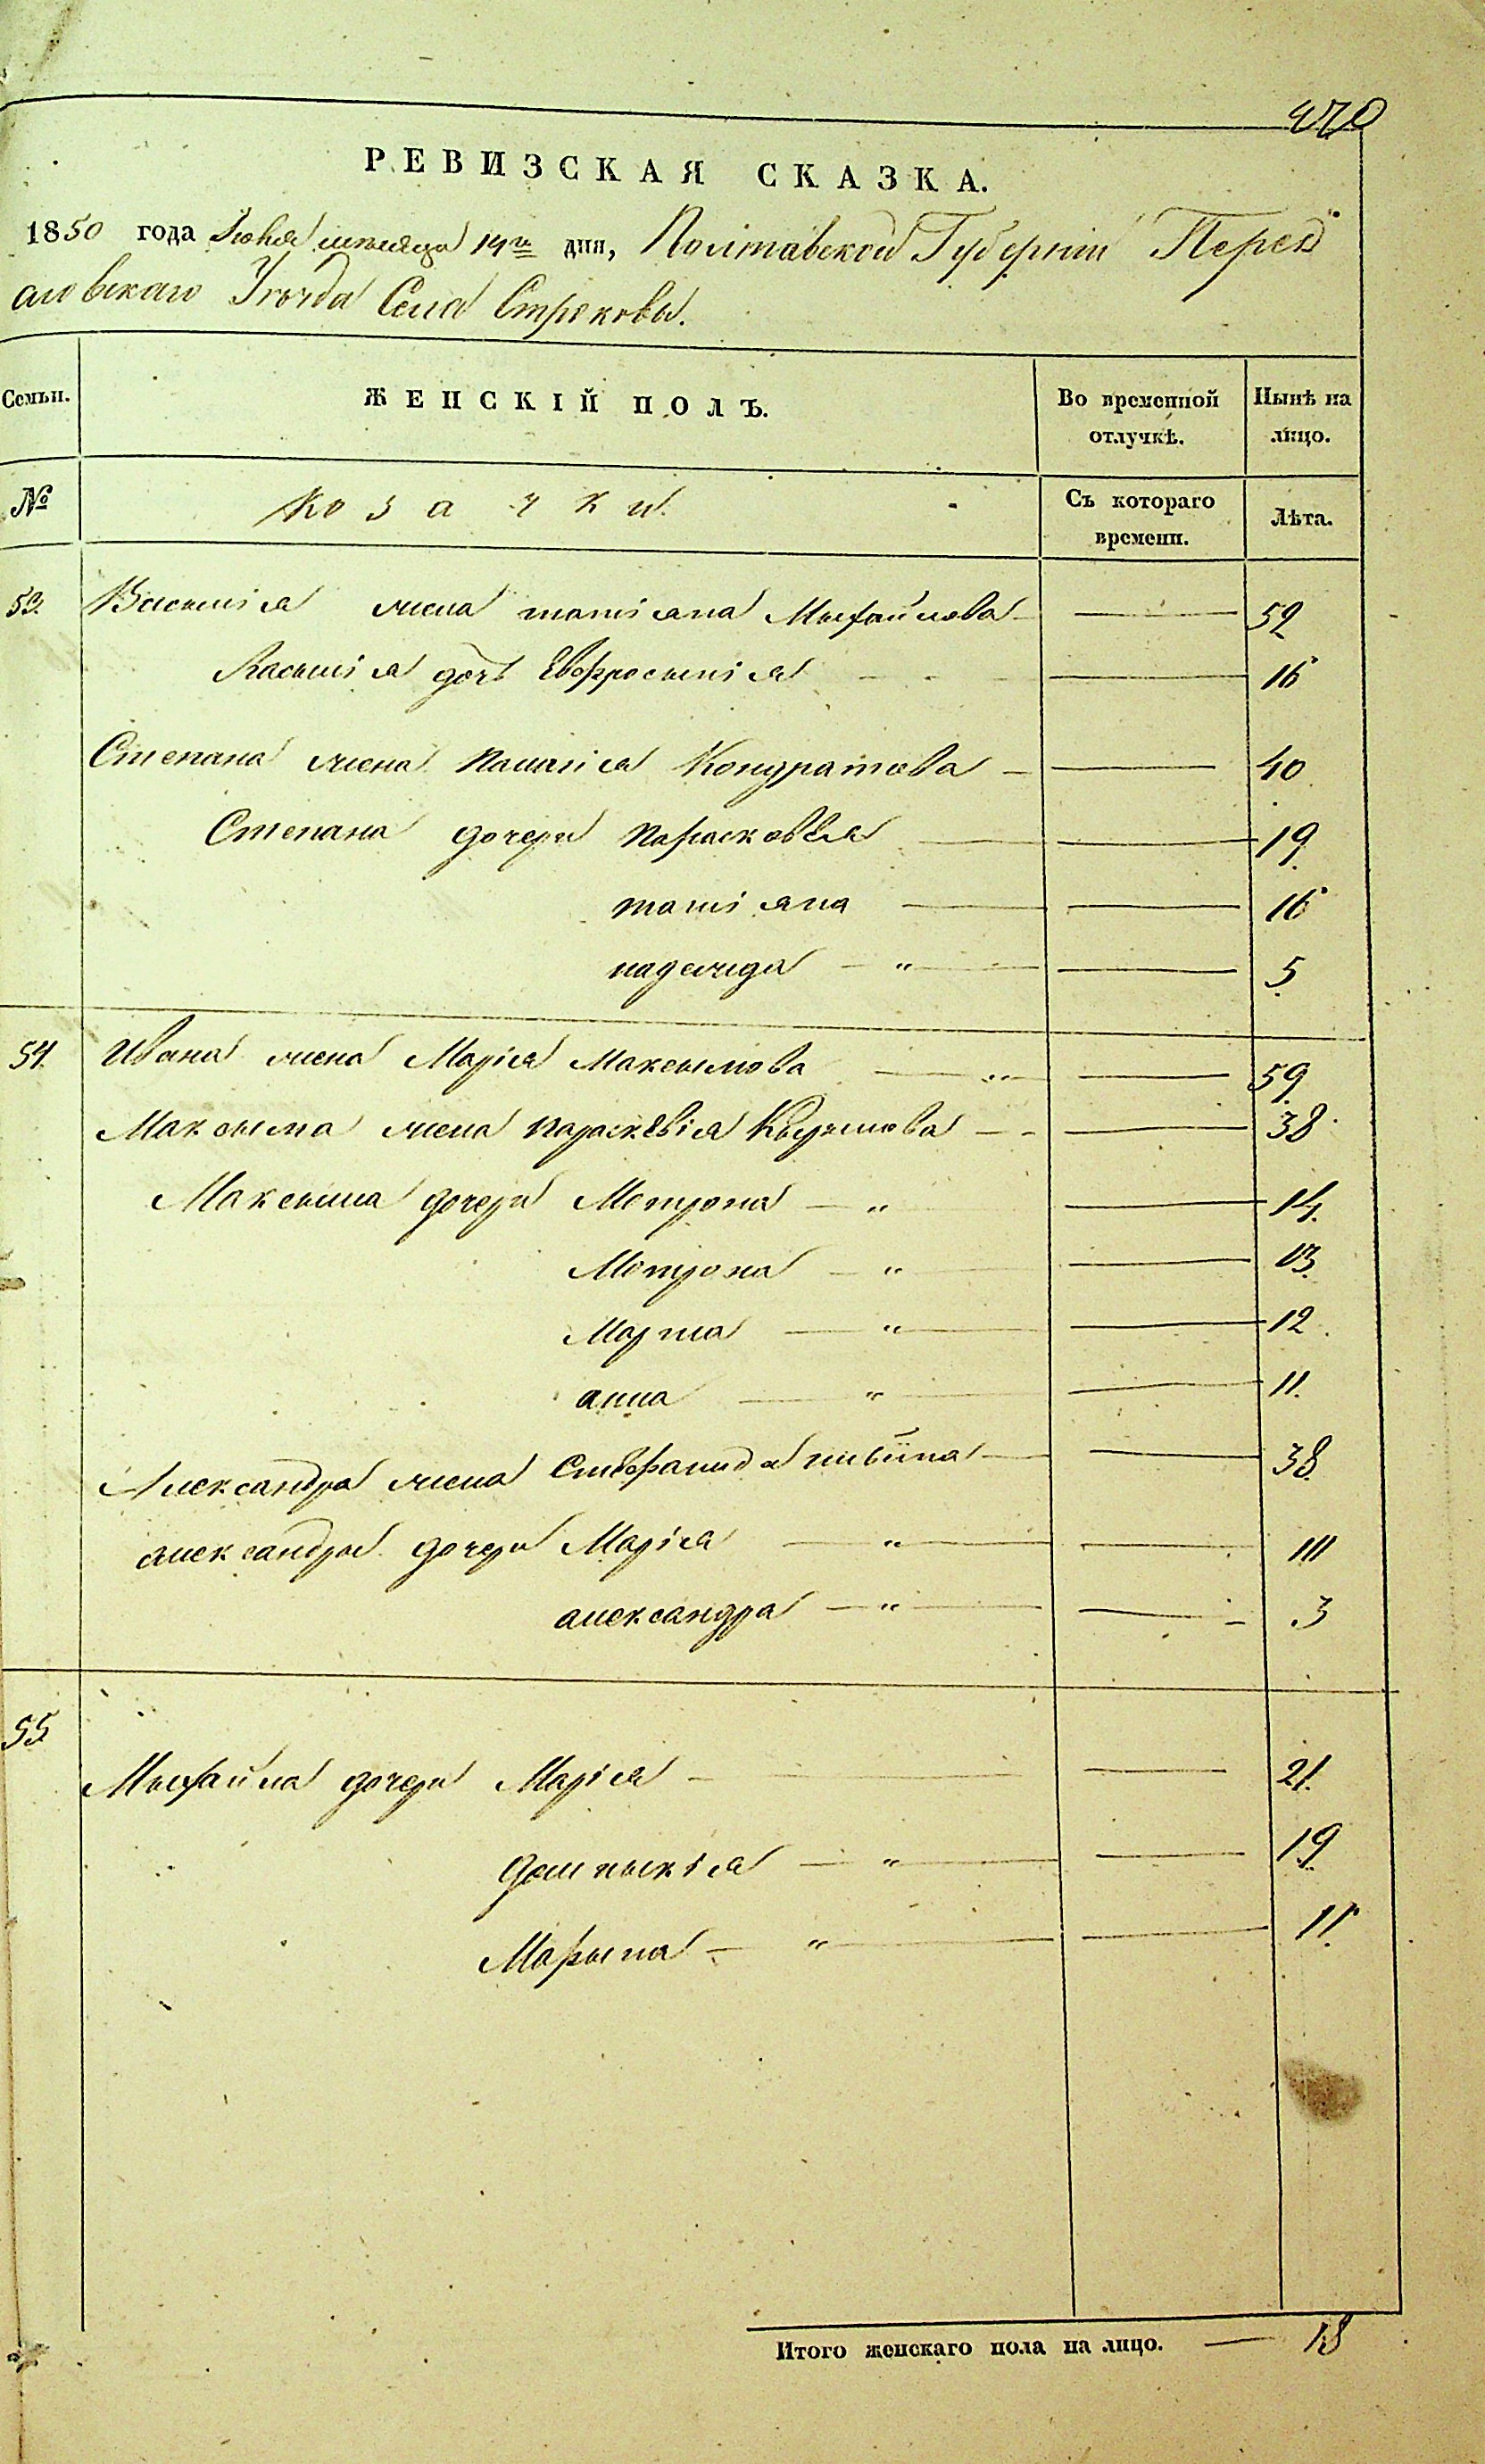 470
РЕВИЗСКАЯ СКАЗКА.
1850 года Июня месяца 14го дня, Полтавской Губерніи Перея
словскаго Уѣзда Села Строковы.
Семьи. ЖЕНСКІЙ ПОЛЪ. Во временной отлучкѣ. Нынѣ на лицо.
№ Козачки. Съ котораго времени. Лѣта.
53. Василія жена татіана Мыхайлова — 52
Василія дочь Евфросынія — 16
Степана жена Палагія Кондратова — 40
Степана дочери Парасковья — 19
татіана — 16
надежда — " — 5
54. Ивана жена Марія Максымова — " — 59
Максыма жена параскевія — 38
Максыма дочери Мотрона — " — 14.
Мотрона — " — 13.
Марта — " — 12
анна — " — 11.
Александра жена Стефанида — 38.
александра дочери Марія — "
александра — " — 3
55
Мыхайла дочери Марія — 21.
домныкія — " — 19.
Марына — " — 11.
Итого женскаго пола на лицо. — 18